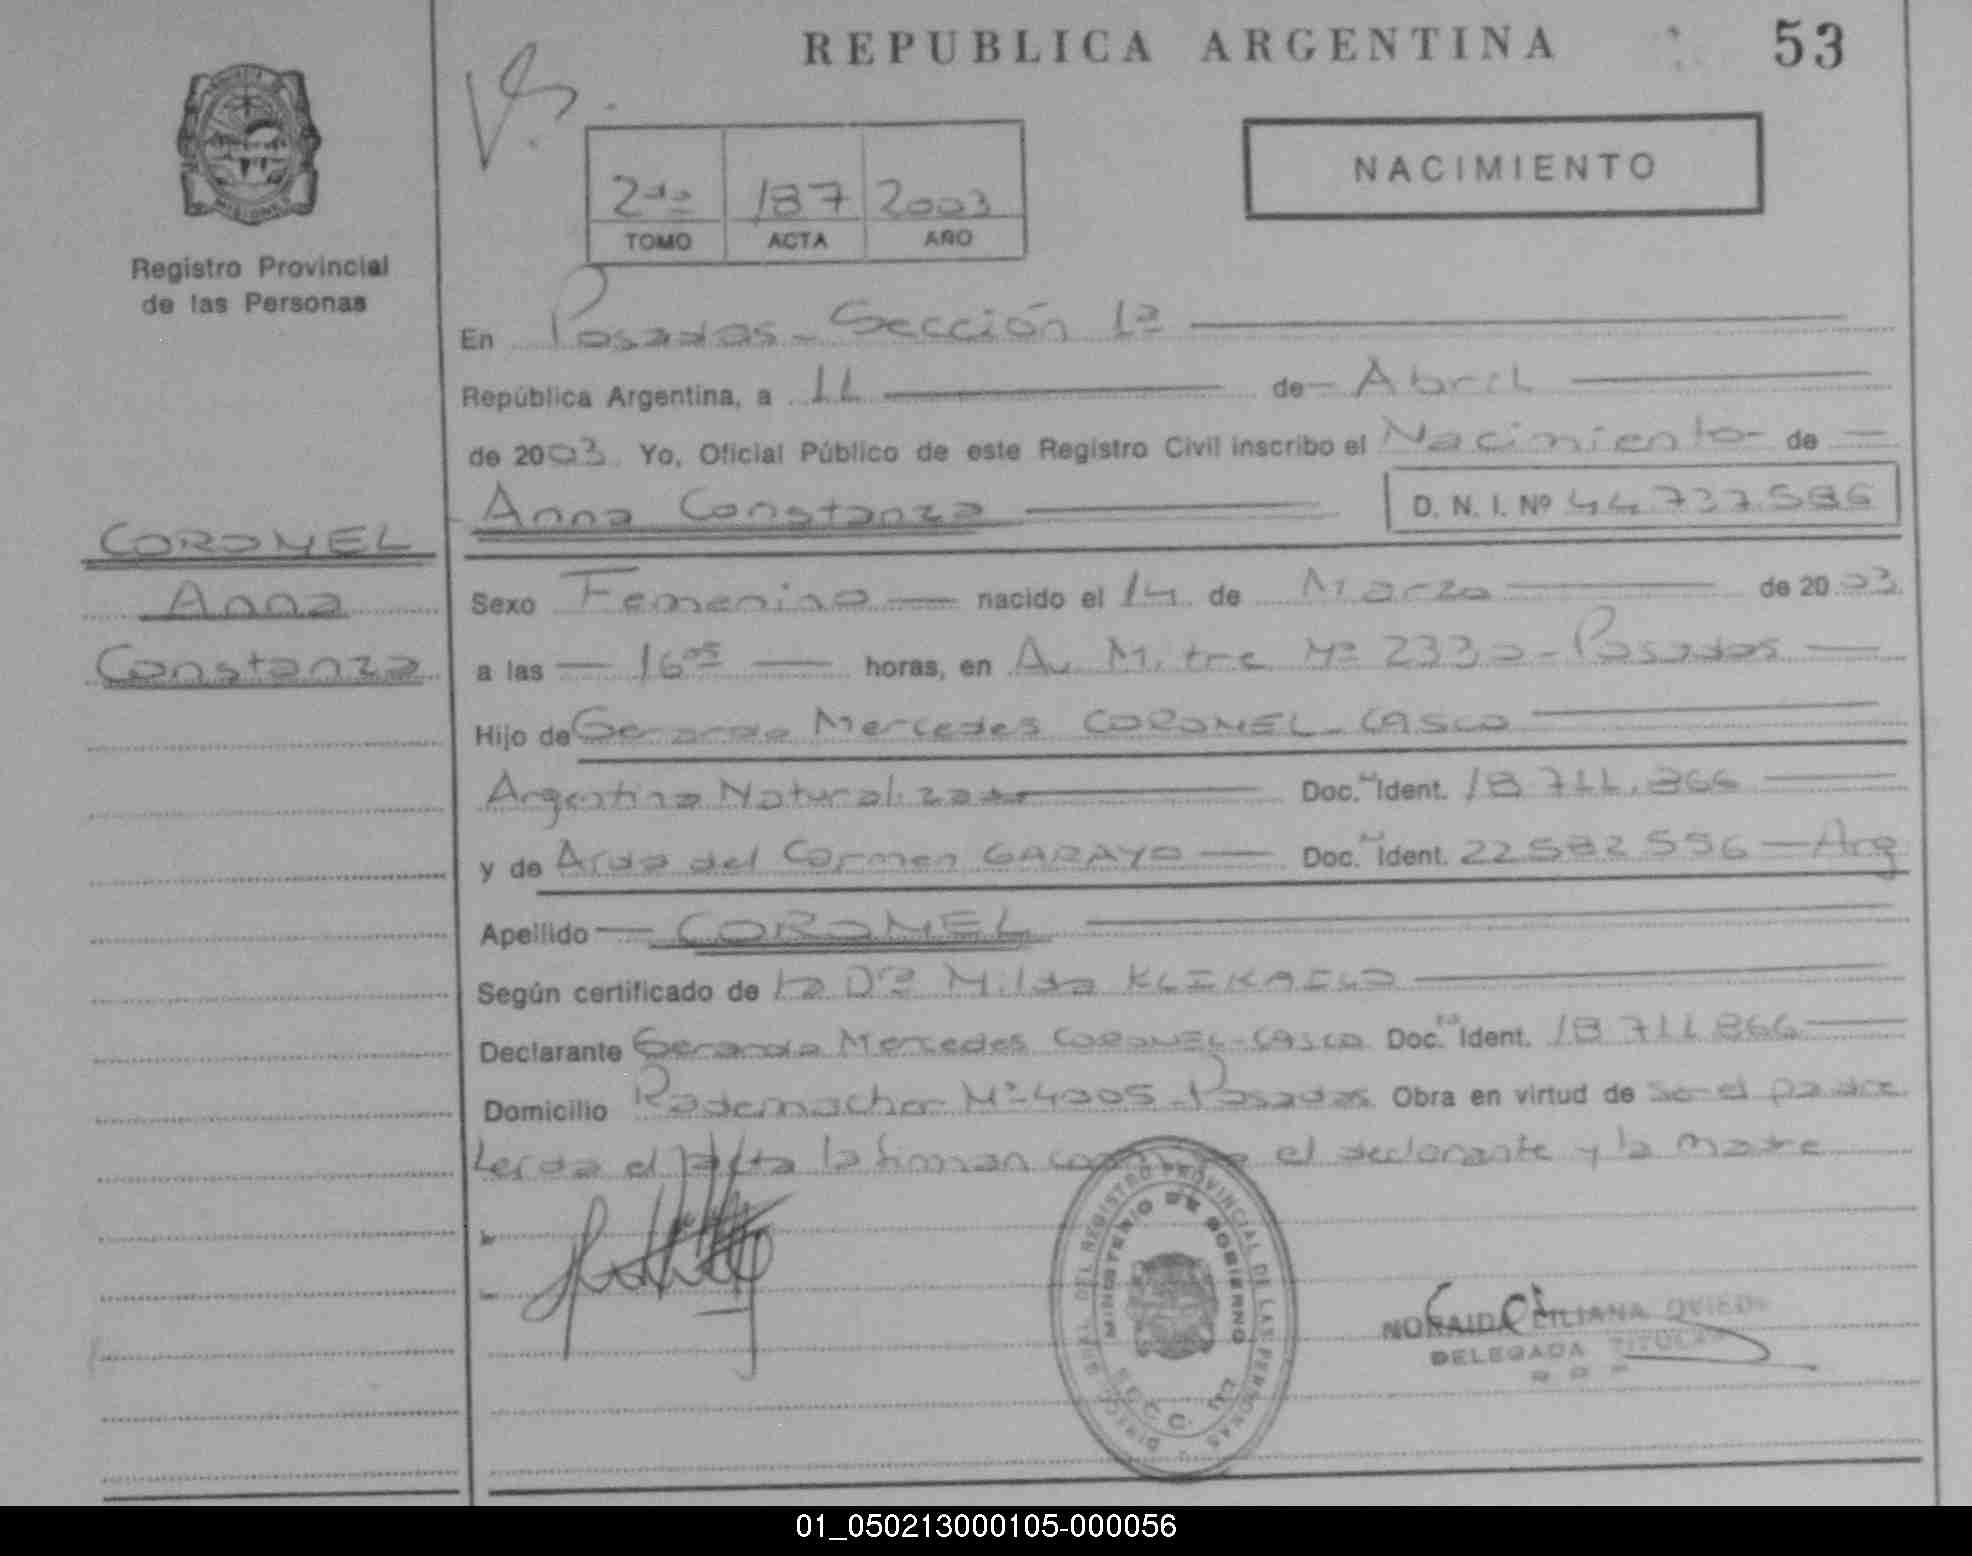 REPUBLICA ARGENTINA 53
NACIMIENTO
2do 187 2003
TOMO ACTA AÑO
Registro Provincial
de las Personas
En Posadas - Sección 1ª
República Argentina, a 11 de Abril
de 2003 Yo, Oficial Público de este Registro Civil inscribo el Nacimiento de
Anna Constanza D. N. I. Nº 44 737.586
CORONEL
Anna
Constanza
Sexo Femenino nacido el 14 de Marzo de 2003
a las 16 05 horas, en Av Mitre Nº 2330 - Posadas
Hijo de Gerardo Mercedes CORONEL - CASCO
Argentino Naturalizado Doc. Ident. 18 711.866
y de Aida del Carmen GARAYO Doc. Ident. 22 582 556 - Arg
Apellido CORONEL
Según certificado de la Dra Milda
Declarante Gerardo Mercedes CORONEL - CASCO Doc. Ident. 18 711 866
Domicilio Rademacher Nº 4005 - Posadas Obra en virtud de ser el padre
Leida el Acta la firman el declarante y la madre
DIREC. GRAL. DEL REGISTRO PROVINCIAL DE LAS PERSONAS
MINISTERIO DE GOBIERNO
NORAIDA LILIANA OVIEDO
DELEGADA TITULAR
01_050213000105-000056